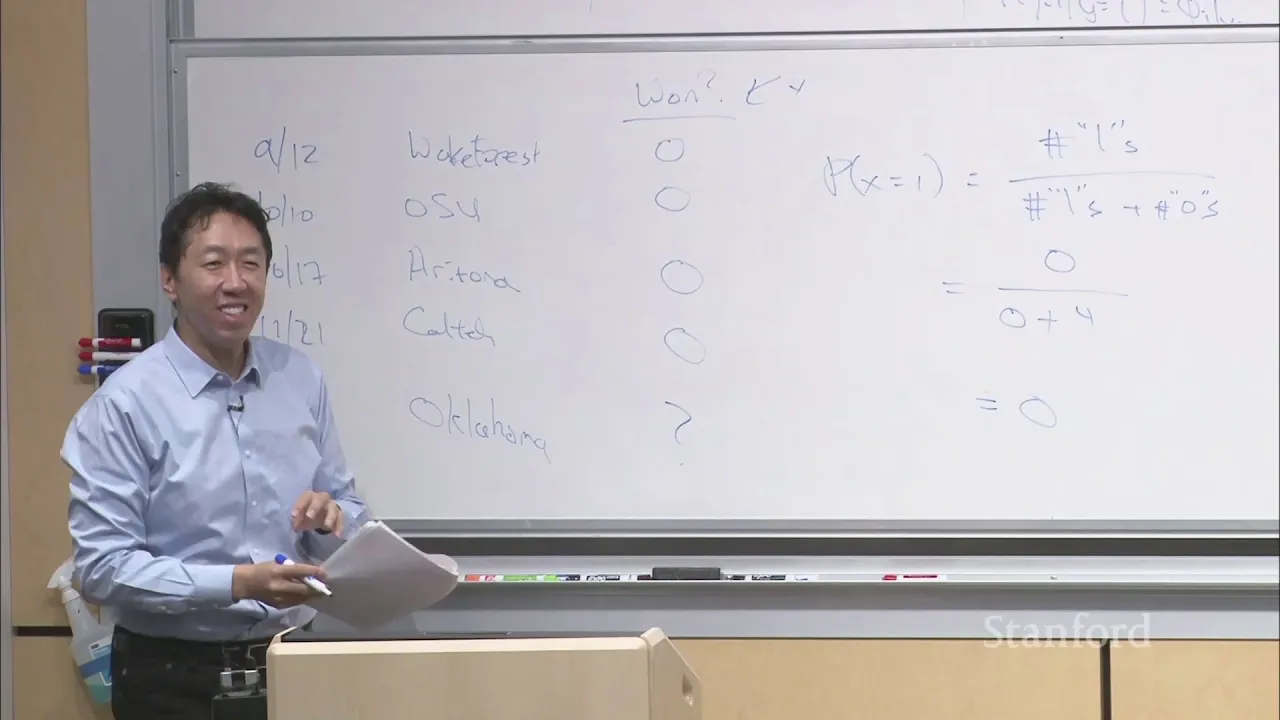 Won? ← x
9/12 Wakeforest 0
10/10 OSU 0
10/17 Arizona 0
11/21 Caltech 0
Oklahoma ?
P(x=1) = #"1"s
#"1"s + #"0"s
= 0
0+4
= 0
Stanford